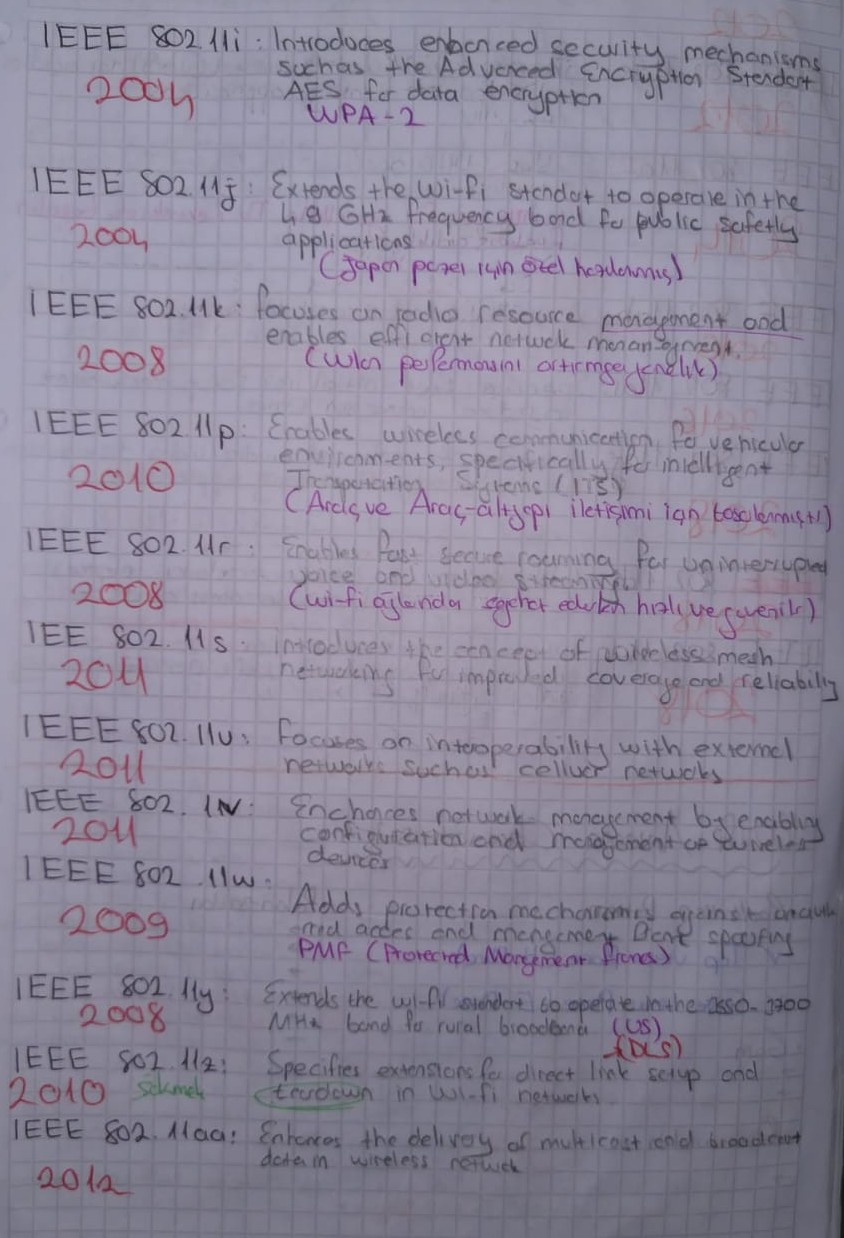 IEEE 802.11i : Introduces enhanced security mechanisms
suchas the Advenced Encryption Stendart
2004 AES for data encryption
WPA-2
IEEE 802.11j : Extends the Wi-fi stendart to operate in the
4.9 GHz frequency band for public safetly
2004 applications
(Japon pazarı için özel hazırlanmış)
IEEE 802.11k : focuses on radio resource management and
enables efficient network
2008 (Wlan
IEEE 802.11p : Enables wireless communication for vehicular
environments, specifically for intelligent
2010 Transportation Systems (ITS)
(Araç ve Araç-altyapı iletişimi için tasarlanmıştı)
IEEE 802.11r : Enables fast secure roaming for uninterrupted
voice and video streaming
2008 (Wi-fi ağlarında hızlı ve güvenilir)
IEE 802.11s : introduces the concept of wireless mesh
2011 networking for improved coverage and reliability
IEEE 802.11u : focuses on interoperability with external
2011 networks suchas networks
IEEE 802.11v : Enchances network management by enabling
2011 configuration and management of wireless
devices
IEEE 802.11w :
Adds protection mechanisms against
2009 and management spoofing
PMF (Protected Management frames)
IEEE 802.11y : Extends the wi-fi stendart to operate in the 3650-3700
2008 MHz band for rural broadband (US)
(DLS)
IEEE 802.11z : Specifies extensions for direct link setup and
2010 sökmek teardown in Wi-fi networks.
IEEE 802.11aa : Enhances the delivery of multicast and broadcast
data in wireless network
2012